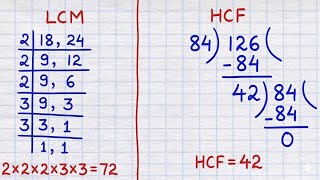 LCM
2 | 18, 24
2 | 9, 12
2 | 9, 6
3 | 9, 3
3 | 3, 1
1, 1
2×2×2×3×3=72
HCF
84) 126 (
-84
42) 84 (
-84
0
HCF=42